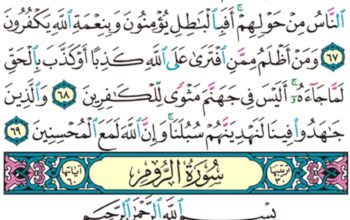 النَّاسُ مِنْ حَوْلِهِمْ ۚ أَفَبِالْبَاطِلِ يُؤْمِنُونَ وَبِنِعْمَةِ اللَّهِ يَكْفُرُونَ
٦٧ وَمَنْ أَظْلَمُ مِمَّنِ افْتَرَىٰ عَلَى اللَّهِ كَذِبًا أَوْ كَذَّبَ بِالْحَقِّ
لَمَّا جَاءَهُ ۚ أَلَيْسَ فِي جَهَنَّمَ مَثْوًى لِلْكَافِرِينَ ٦٨ وَالَّذِينَ
جَاهَدُوا فِينَا لَنَهْدِيَنَّهُمْ سُبُلَنَا ۚ وَإِنَّ اللَّهَ لَمَعَ الْمُحْسِنِينَ ٦٩
سُورَةُ الرُّومِ
بِسْمِ اللَّهِ الرَّحْمَٰنِ الرَّحِيمِ